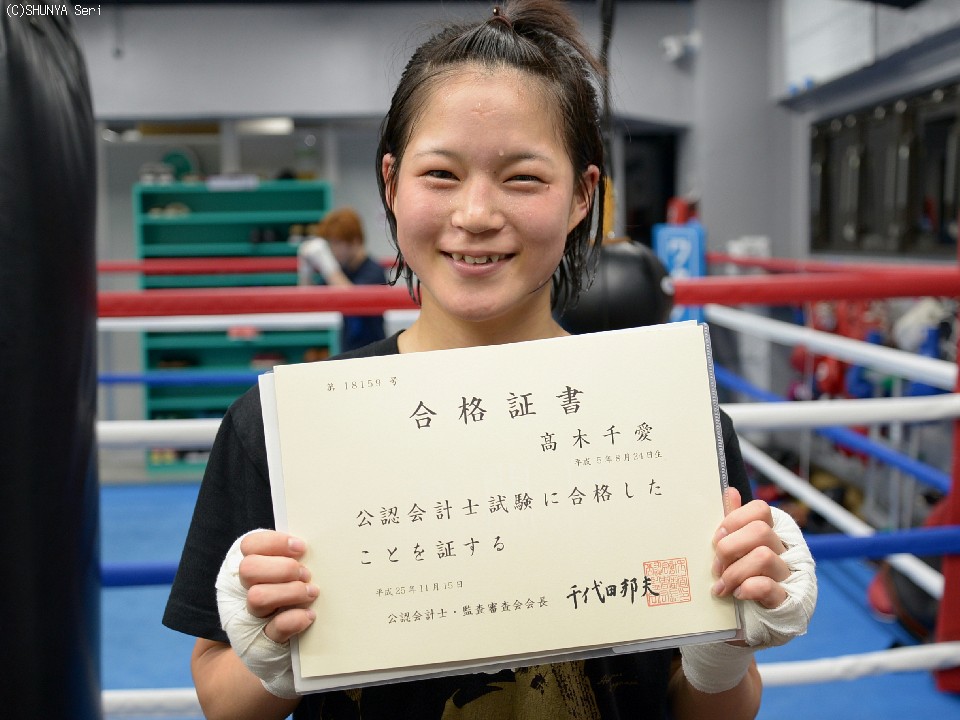 (C)SHUNYA Seri
第 18159 号
合格証書
髙木千愛
平成 5年 8月 24日生
公認会計士試験に合格した
ことを証する
平成 25年 11月 15日
公認会計士・監査審査会会長 千代田邦夫